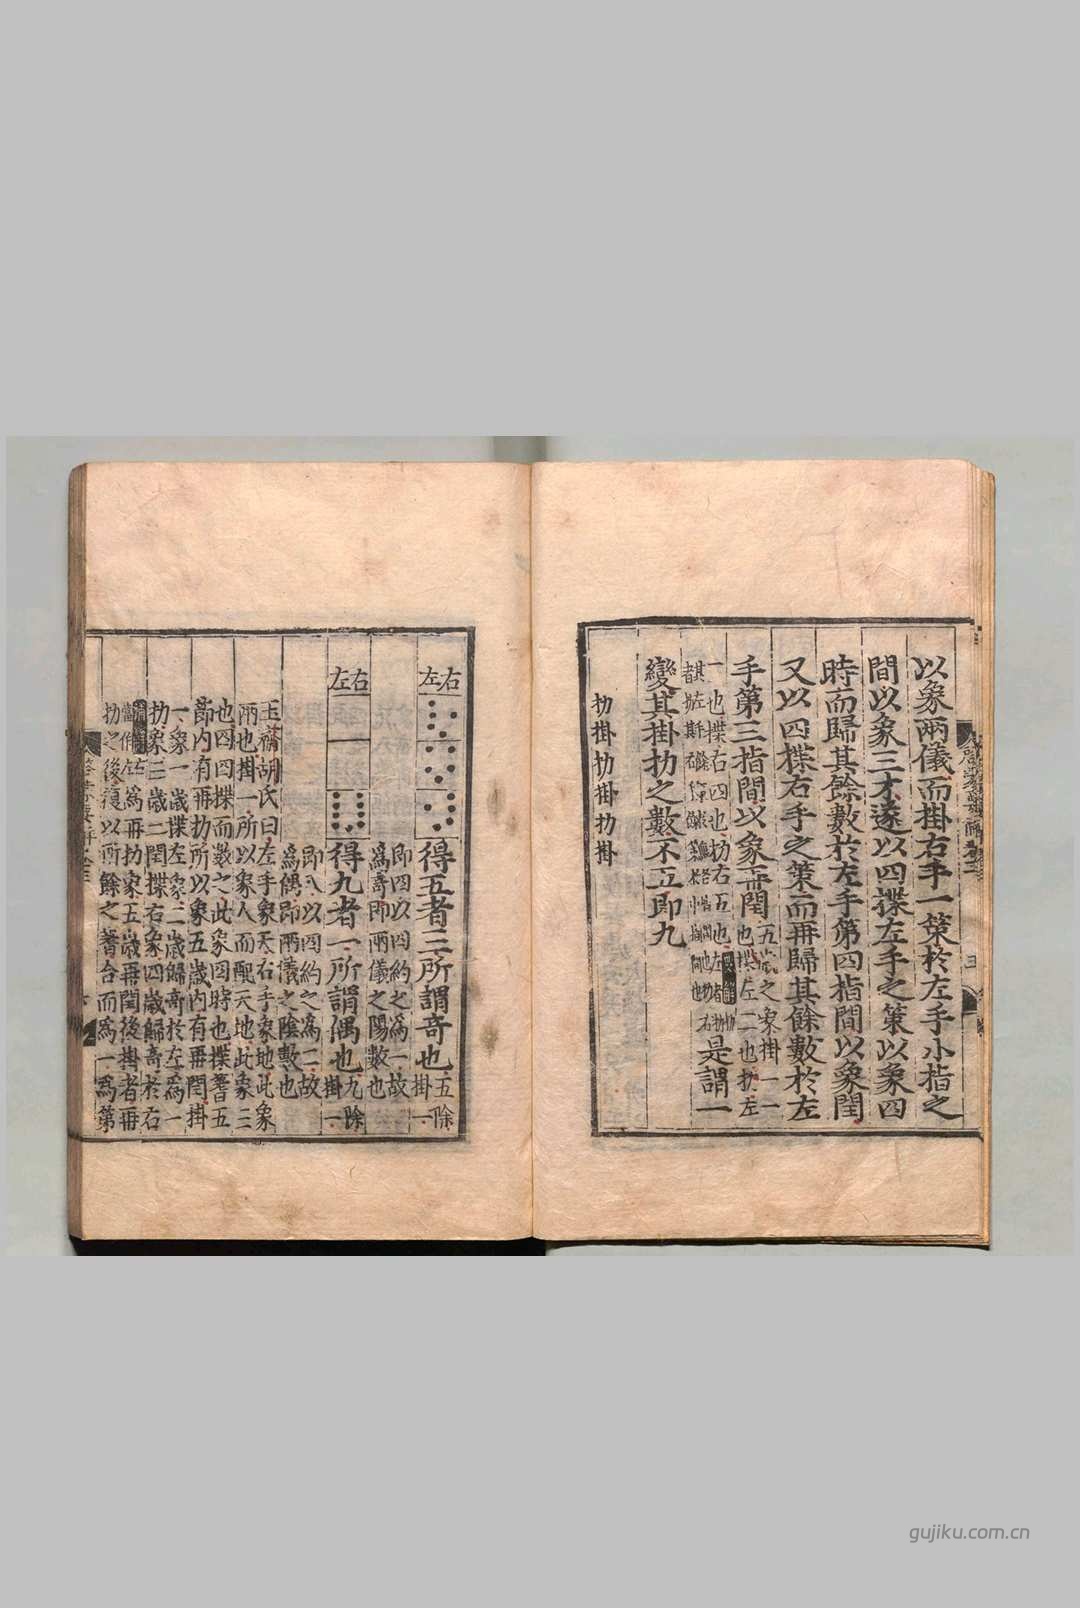 以象兩儀而掛右手一策於左手小指之
間以象三才遂以四揲左手之策以象四
時而歸其餘數於左手第四指間以象閏
又以四揲右手之策而再歸其餘數於左
手第三指間以象再閏
五歲之象掛一一
也揲左二也扐左
三也揲右四也扐右五也
是謂一
變其掛扐之數不五即九
扐掛扐掛扐掛
右左
得五者三所謂奇也
五除
掛一
即四以四約之爲一故
爲奇即兩儀之陽數也
右左
得九者一所謂偶也
九除
掛一
即八以四約之爲二故
爲偶即兩儀之陰數也
玉齋胡氏曰左手象天右手象地此象
兩也掛一所以象人而配天地此象三
也四四揲而數之此象四時也揲蓍五
節內有再扐所以象五歲內有再閏掛
一象一歲揲左象二歲歸奇於左爲一
扐象三歲一閏揲右象四歲歸奇於右
爲再扐象五歲再閏後掛者再
扐之後復以所餘之蓍合而爲一爲第
gujiku.com.cn